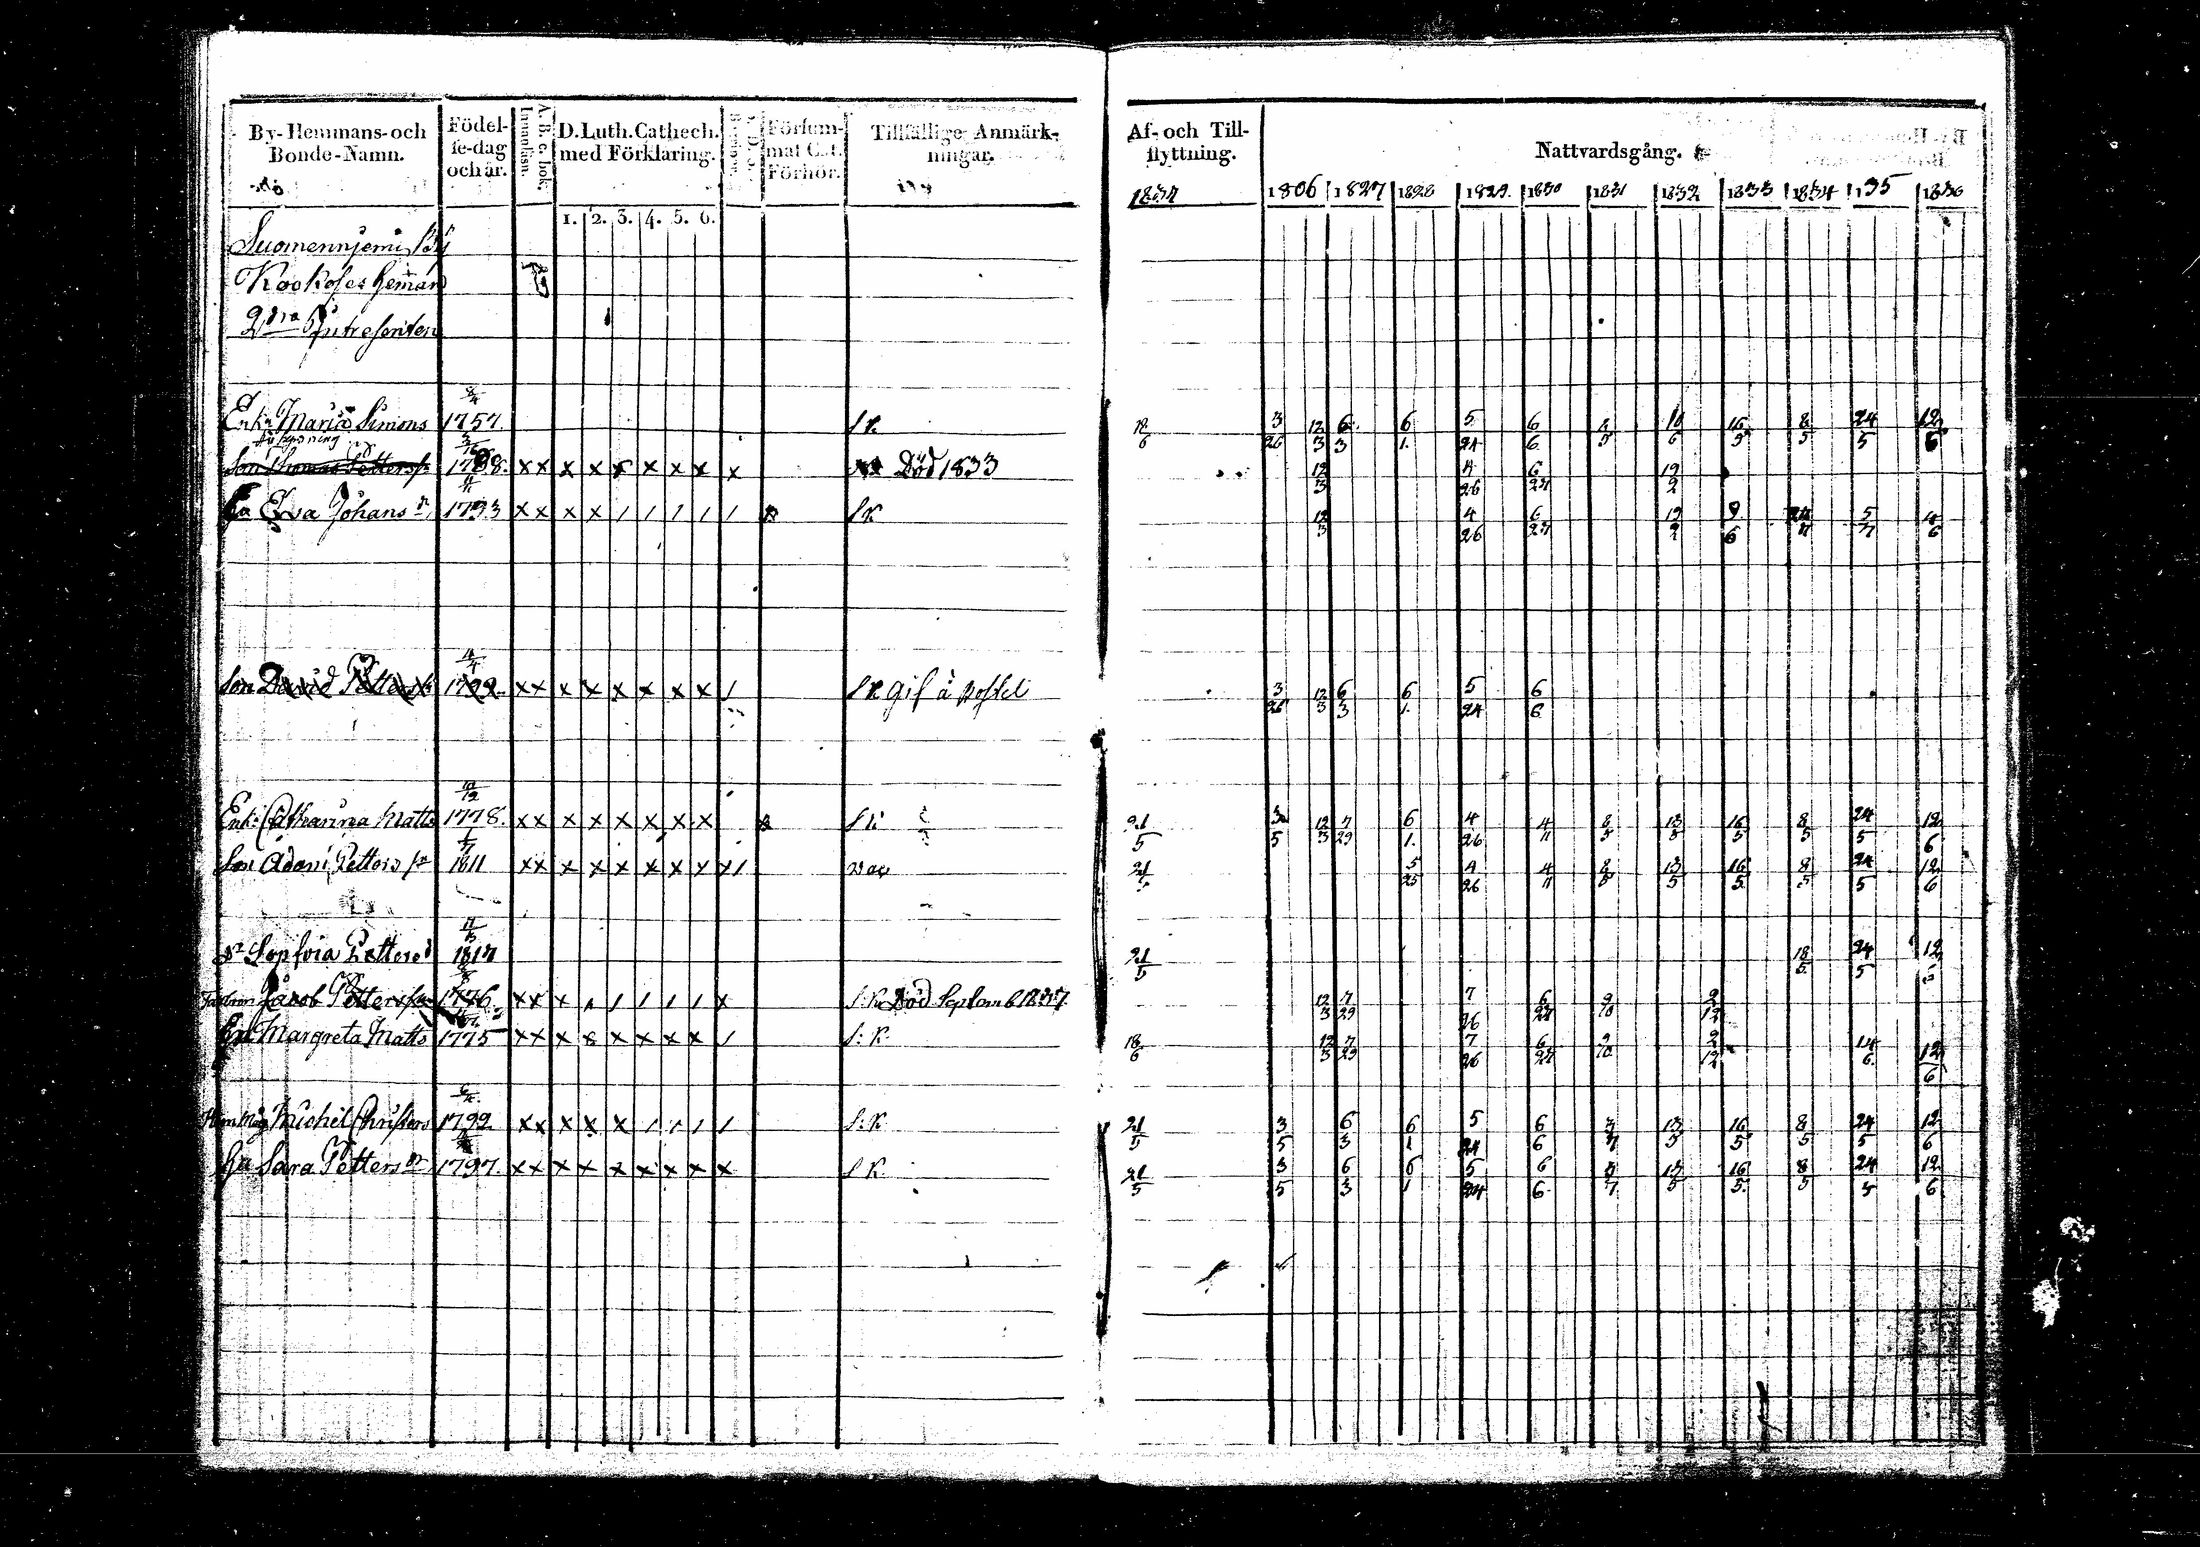 By-Hemmans-och Bonde-Namn. Födel-se-dag och år. A.B.c.bok. Innanläsn. D.Luth.Cathech. med Förklaring. Försum-mat Cat. Förhör. Tillfällige Anmärk-ningar. Af- och Till-flyttning. Nattvardsgång.
1837 1806 1827 1828 1829 1830 1831 1832 1833 1834 135 1836
1. 2. 3. 4. 5. 6.
Suomennjemi By
Kookoses heman
2dra Intresenten
8/4
Enk: Maria Simons 1757 S K. 18/6 3/26 12/3 6/3 6/1 5/24 6/6 8/5 10/6 16/5 8/5 24/5 12/6
Son Thomas Petterss: 1788. x x x x x x x x x Död 1833 12/3 4/26 6/27 19/2
Hu Eva Johans dr 1793 x x x x / / / / / S K 12/3 4/26 6/27 19/2 9/6 5/7 4/6
4/4
Son David Petterss: 1799 x x x x x x x x / S K gif å postel 3/26 12/3 6/3 6/1 5/24 6/6
Enk: Catharina Matts 1778. x x x x x x x x S K 21/5 3/5 12/3 7/29 6/1. 4/26 4/11 8/5 13/5 16/5 8/5 24/5 12/6
1/7
Son Adam Petters sn 1811 x x x x x x x x x / vac 21/5 5/25 4/26 4/11 8/5 13/5 16/5 8/5 24/5 12/6
dr Sophia Petters d 1817 21/5 18/5 24/5 12/6
Jacob Petterss: 1776. x x x / / / / x S: K Död Septemb 1837. 12/3 7/29 7/26 6/27 9/10 2/12
Hu Margreta Matts 1775 x x x 8 x x x x / S: K. 18/6 12/3 7/29 7/26 6/27 9/10 2/12 14/6 12/6
Hem Måg Michel Christers 1799 x x x x x / / / / S: K 21/5 3/5 6/3 6/1 5/24 6/6 3/7 13/5 16/5 8/5 24/5 12/6
Hu Sara Petters dr 1797. x x x x x x x x x S K 21/5 3/5 6/3 6/1 5/24 6/6 3/7 13/5 16/5 8/5 24/5 12/6